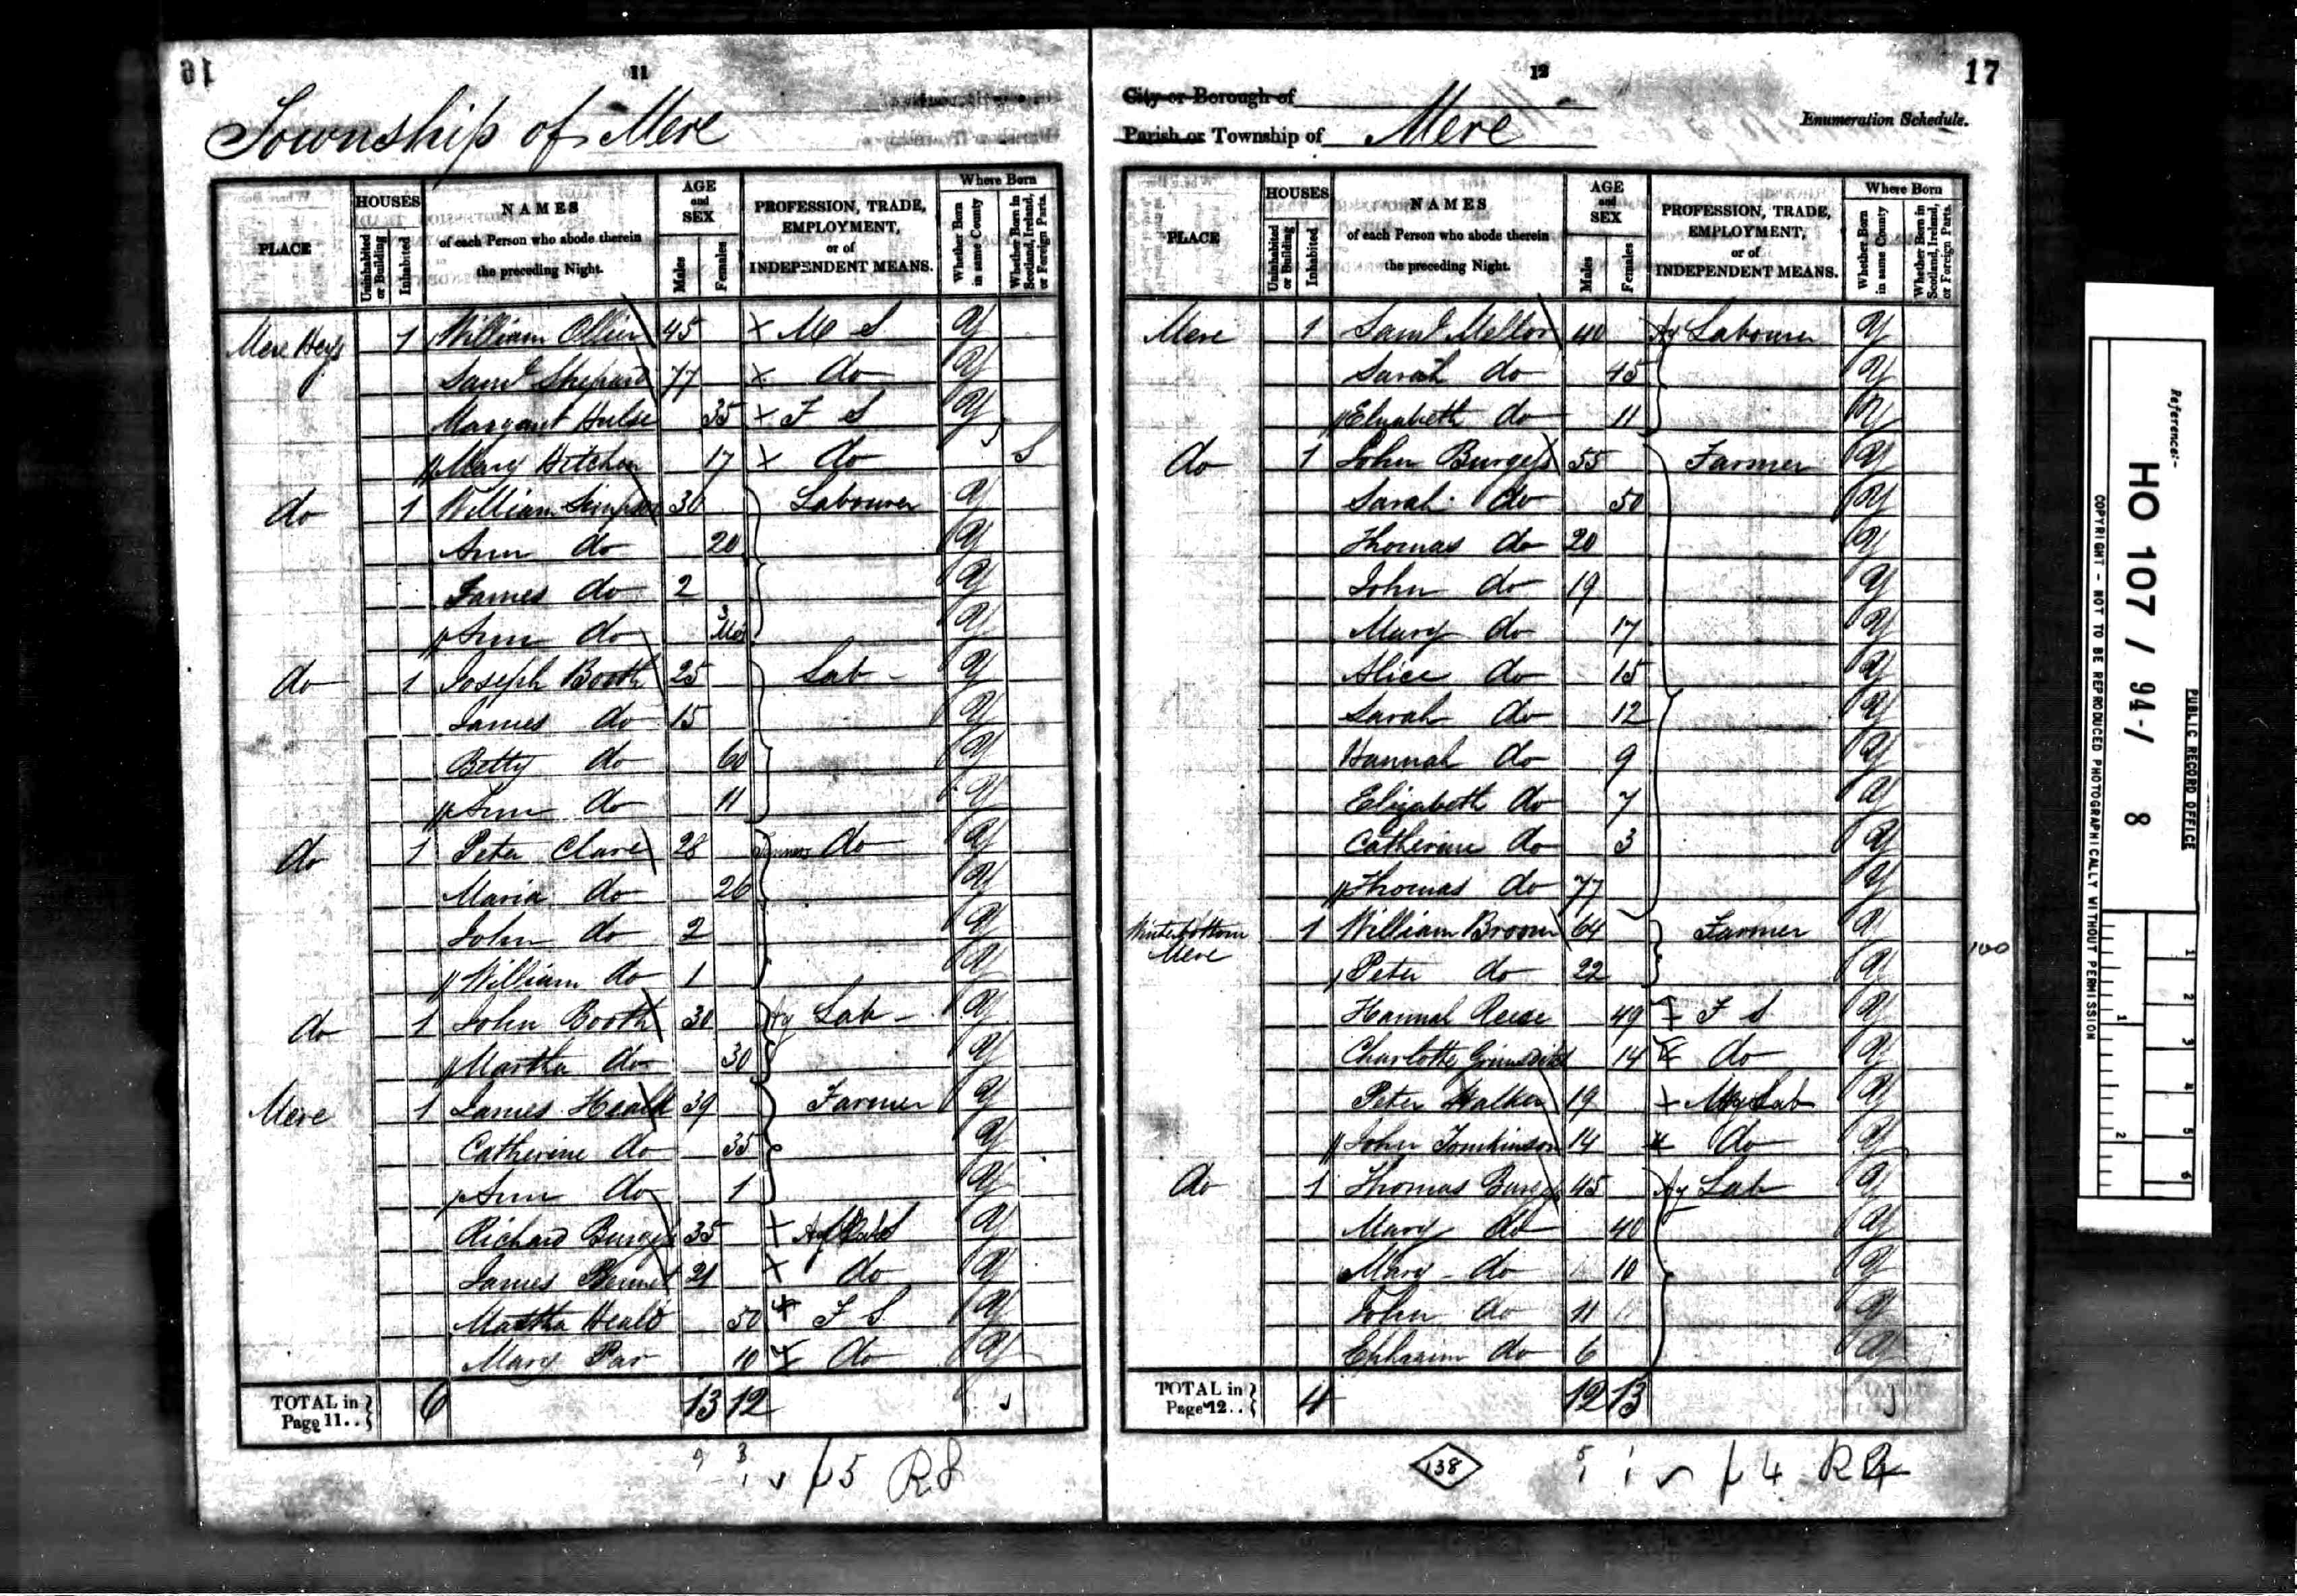 16
11
Township of Mere
PLACE
HOUSES
Uninhabited or Building
Inhabited
NAMES
of each Person who abode therein
the preceding Night.
AGE
and
SEX
Males
Females
PROFESSION, TRADE,
EMPLOYMENT,
or of
INDEPENDENT MEANS.
Where Born
Whether Born in same County
Whether Born in Scotland, Ireland, or Foreign Parts.
Mere Heys 1 William Ollier 45 M S Y
Saml Shepard 77 do Y
Margaret Hulse 35 F S Y
Mary Hitchen 17 do S
do 1 William Simpson 30 Labourer Y
Ann do 20 Y
James do 2 Y
Ann do 3 Mos Y
do 1 Joseph Booth 25 Lab Y
James do 15 Y
Betty do 60 Y
Ann do 11 Y
do 1 Peter Clare 28 do Y
Maria do 26 Y
John do 2 Y
William do 1 Y
do 1 John Booth 30 Ag Lab Y
Martha do 30 Y
Mere 1 James Heald 39 Farmer Y
Catherine do 35 Y
Ann do 1 Y
Richard Burgess 35 Y
James Bennet 21 do Y
Martha Heald 50 F S Y
Mary Par 10 do Y
TOTAL in Page 11.. 6 13 12
9 3 5 R8
12
17
City or Borough of
Parish or Township of Mere
Enumeration Schedule.
PLACE
HOUSES
Uninhabited or Building
Inhabited
NAMES
of each Person who abode therein
the preceding Night.
AGE
and
SEX
Males
Females
PROFESSION, TRADE,
EMPLOYMENT,
or of
INDEPENDENT MEANS.
Where Born
Whether Born in same County
Whether Born in Scotland, Ireland, or Foreign Parts.
Mere 1 Saml Mellor 40 Ag Labourer Y
Sarah do 45 Y
Elizabeth do 11 N
do 1 John Burgess 55 Farmer Y
Sarah do 50 Y
Thomas do 20 Y
John do 19 Y
Mary do 17 Y
Alice do 15 Y
Sarah do 12 Y
Hannah do 9 Y
Elizabeth do 7 Y
Catherine do 3 Y
Thomas do 77 Y
Winterbottom Mere 1 William Broom 64 Farmer Y
Peter do 22 Y
Hannah 49 F S Y
Charlotte Grimsditch 14 do Y
Peter Walker 19 Lab Y
John Tomkinson 14 do Y
do 1 Thomas Burgess 45 Ag Lab Y
Mary do 40 Y
Mary do 10 Y
John do 11 Y
Ephraim do 6 Y
TOTAL in Page 12.. 4 12 13
138
4
100
Reference:-
HO 107 / 94-/ 8
PUBLIC RECORD OFFICE
COPYRIGHT - NOT TO BE REPRODUCED PHOTOGRAPHICALLY WITHOUT PERMISSION
1 2 3 4 5 6
1 2